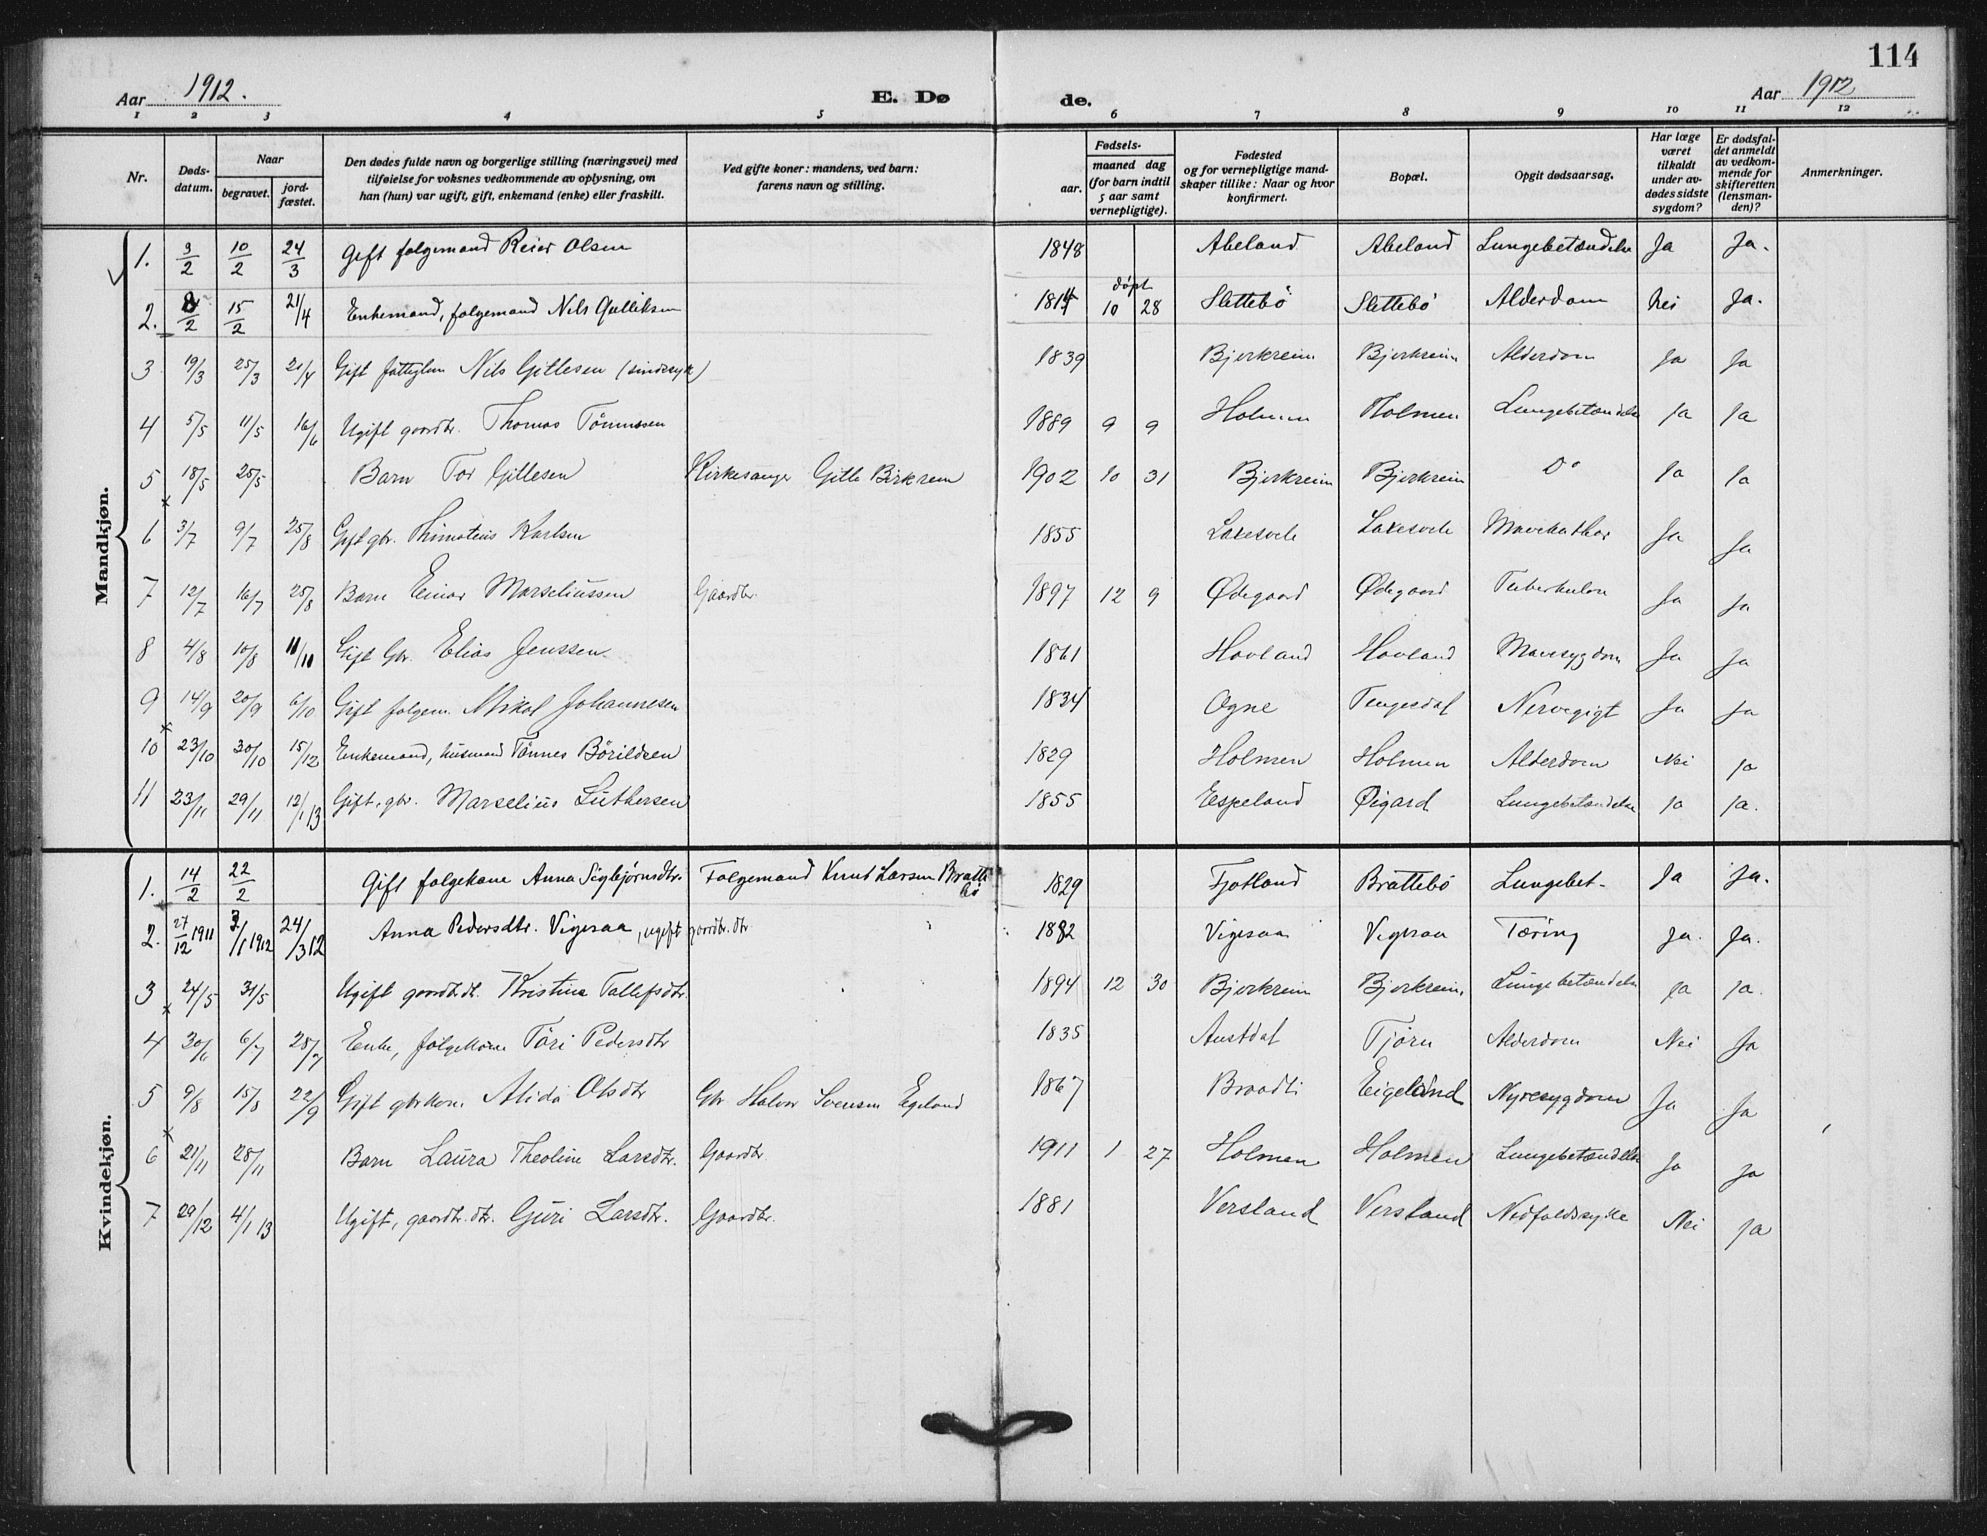 114
Aar 1912. E. Døde. Aar 1912
1 2 3 4 5 6 7 8 9 10 11 12
Nr. Dødsdatum. Naar begravet. jordfæstet. Den dødes fulde navn og borgerlige stilling (næringsvei) med tilføielse for voksnes vedkommende av oplysning, om han (hun) var ugift, gift, enkemand (enke) eller fraskilt. Ved gifte koner: mandens, ved barn: farens navn og stilling. Fødsels- aar. maaned dag (for barn indtil 5 aar samt vernepligtige). Fødested og for vernepligtige mandskaper tillike: Naar og hvor konfirmert. Bopæl. Opgit dødsaarsag. Har læge været tilkaldt under avdødes sidste sygdom? Er dødsfaldet anmeldt av vedkommende for skifteretten (lensmanden)? Anmerkninger.
Mandkjøn.
1. 3/2 10/2 24/3 Gift folgemand Reier Olsen 1848 Abeland Abeland Lungebetændelse Ja Ja.
døpt
2. 8/2 15/2 21/4 Enkemand, folgemand Nils Gulliksen 1814 10 28 Slettebö Slettebö Alderdom Nei Ja.
3 19/3 25/3 21/4 Gift fattiglem Nils Gitlesen (sindssyk) 1839 Bjerkreim Bjerkreim Alderdom Ja Ja
4 5/5 11/5 16/6 Ugift gaardbr. Thomas Tönnessen 1889 9 9 Holmen Holmen Lungebetændelse Ja Ja
5 18/5 25/5 Barn Tor Gitlesen Kirkesanger Gitle Birkrem 1902 10 31 Bjerkreim Bjerkreim Do Ja Ja
6 3/7 9/7 25/8 Gift gbr. Thimoteus Karlsen 1855 Laksesvele Laksesvele Mavekathar Ja Ja
7 12/7 16/7 25/8 Barn Einar Marseliussen Gaardbr. 1897 12 9 Ødegaard Ødegaard Tuberkulose Ja Ja
8 4/8 10/8 11/10 Gift Gbr. Elias Jenssen 1861 Hovland Hovland Mavesygdom Ja Ja
9 14/9 20/9 6/10 Gift folgem. Mikal Johannesen 1834 Ogne Tengesdal Nervegigt Ja Ja
10 23/10 30/10 15/12 Enkemand, husmand Tönnes Börildsen 1829 Holmen Holmen Alderdom Nei Ja
11 23/11 29/11 12/1 13 Gift, gbr. Marselius Luthersen 1855 Espeland Øigard Lungebetændelse Ja Ja.
Kvindekjøn.
1. 14/2 22/2 Gift folgekone Anna Sigbjørnsdtr. Folgemand Knut Larsen Brattebö 1829 Fjotland Brattebö Lungebet. Ja Ja.
2. 27/12 1911 3/1 1912 24/3 12 Anna Pedersdtr. Vigesaa, ugift gaardbr. dtr 1882 Vigesaa Vigesaa Tæring Ja. Ja.
3 24/5 31/5 Ugift gaardbr. dt. Kristina Tallefsdtr. 1894 12 30 Bjerkreim Bjerkreim. Lungebetændelse Ja Ja.
4 30/6 6/7 28/7 Enke, folgekone Töri Pedersdtr 1835 Austdal Tjörn Alderdom Nei Ja
5 9/8 15/8 22/9 Gift gbrkone Alida Olsdtr Gbr Halvor Svensen Egeland 1867 Braadli Eigeland Nyresygdom Ja Ja
6 21/11 28/11 Barn Laura Theoline Larsdtr. Gaardbr. 1911 1 27 Holmen Holmen Lungebetændelse Ja Ja
7 29/12 4/1 13 Ugift, gaardbr. dtr. Guri Larsdtr. Gaardbr. 1881 Versland Versland Nedfaldssyke Nei Ja